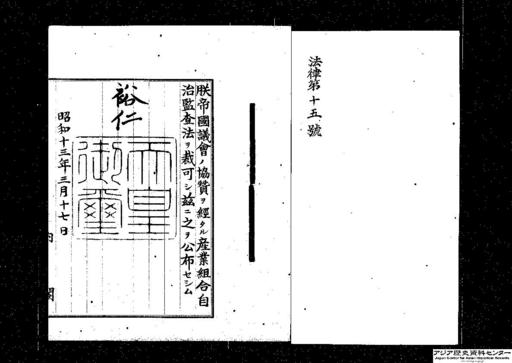 法律第十五號
朕帝國議會ノ協贊ヲ經タル産業組合自
治監査法ヲ裁可シ茲ニ之ヲ公布セシム
裕仁
天皇
御璽
昭和十三年三月十七日
内閣
アジア歴史資料センター
Japan Center for Asian Historical Records